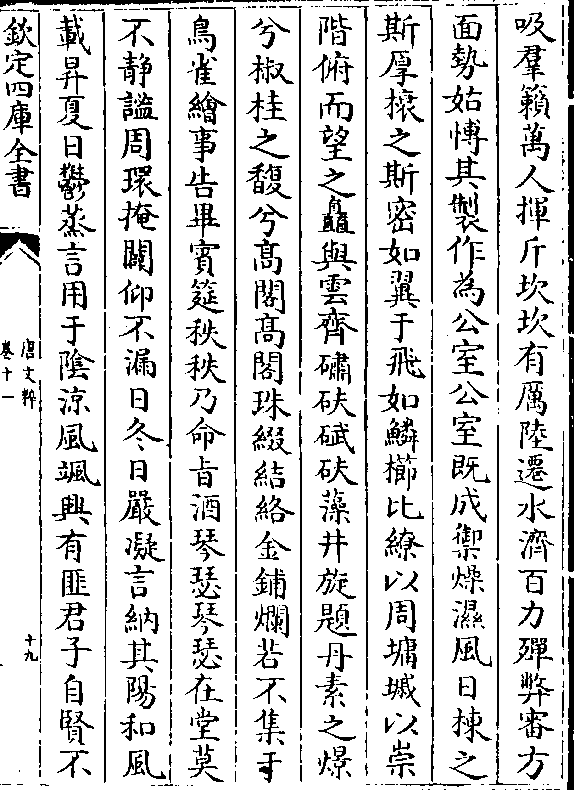 吸羣籟萬人揮斤坎坎有厲陸遷水濟百力殫弊審方
面勢姑愽其製作為公室公室既成禦燥濕風日棟之
斯厚榱之斯密如翼于飛如鱗櫛比繚以周墉墄以崇
階俯而望之矗與雲齊礡砆碔砆藻井旋題丹素之燝
兮椒桂之馥兮髙閣髙閣珠綴結絡金鋪爛若不集于
鳥雀繪事告畢賓筵秩秩乃命㫖酒琴瑟琴瑟在堂莫
不静謐周環掩闢仰不漏日冬日嚴凝言納其陽和風
載昇夏日鬱蒸言用于陰涼風颯興有匪君子自賢不
欽定四庫全書
唐文粹
卷十一
十九